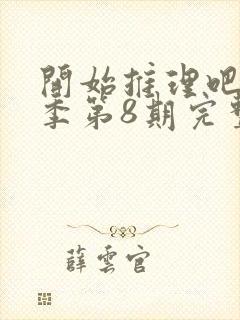 開始推理吧
季第8期完整
薛雲官